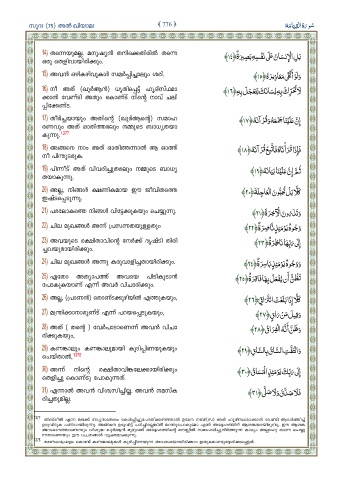 സൂറ (75) അല്‍ ഖിയാമ
﴾ 776 ﴿
سورة القيامة
14) തന്നെയുമല്ല, മനുഷ്യന്‍ തനിക്കെതിരില്‍ തന്നെ
ഒരു തെളിവായിരിക്കും.
بَلِ الْإِنسَانُ عَلَىٰ نَفْسِهِ بَصِيرَةٌ ﴿١٤﴾
15) അവന്‍ ഒഴികഴിവുകള്‍ സമര്‍പ്പിച്ചാലും ശരി.
وَلَوْ أَلْقَىٰ مَعَاذِيرَهُ ﴿١٥﴾
16) നീ അത് (ഖുര്‍ആന്‍) ധൃതിപ്പെട്ട് ഹൃദിസ്ഥമാ
ക്കാന്‍ വേണ്ടി അതും കൊണ്ട് നിന്റെ നാവ് ചലി
പ്പിക്കേണ്ട.
لَا تُحَرِّكْ بِهِ لِسَانَكَ لِتَعْجَلَ بِهِ ﴿١٦﴾
17) തീര്‍ച്ചയായും അതിന്റെ (ഖുര്‍ആന്റെ) സമാഹ
രണവും അത് ഓതിത്തരലും നമ്മുടെ ബാധ്യതയാ
കുന്നു.
إِنَّ عَلَيْنَا جَمْعَهُ وَقُرْآنَهُ ﴿١٧﴾
18) അങ്ങനെ നാം അത് ഓതിത്തന്നാല്‍ ആ ഓത്ത്
നീ പിന്തുടരുക.
فَإِذَا قَرَأْنَاهُ فَاتَّبِعْ قُرْآنَهُ ﴿١٨﴾
19) പിന്നീട് അത് വിവരിച്ചുതരലും നമ്മുടെ ബാധ്യ
തയാകുന്നു.
ثُمَّ إِنَّ عَلَيْنَا بَيَانَهُ ﴿١٩﴾
20) അല്ല, നിങ്ങള്‍ ക്ഷണികമായ ഈ ജീവിതത്തെ
ഇഷ്ടപ്പെടുന്നു.
كَلَّا بَلْ تُحِبُّونَ الْعَاجِلَةَ ﴿٢٠﴾
21) പരലോകത്തെ നിങ്ങള്‍ വിട്ടേക്കുകയും ചെയ്യുന്നു.
وَتَذَرُونَ الْآخِرَةَ ﴿٢١﴾
22) ചില മുഖങ്ങള്‍ അന്ന് പ്രസന്നതയുള്ളതും
وُجُوهٌ يَوْمَئِذٍ نَّاضِرَةٌ ﴿٢٢﴾
23) അവയുടെ രക്ഷിതാവിന്റെ നേര്‍ക്ക് ദൃഷ്ടി തിരി
ച്ചവയുമായിരിക്കും.
إِلَىٰ رَبِّهَا نَاظِرَةٌ ﴿٢٣﴾
24) ചില മുഖങ്ങള്‍ അന്നു കരുവാളിച്ചതായിരിക്കും.
وَوُجُوهٌ يَوْمَئِذٍ بَاسِرَةٌ ﴿٢٤﴾
25) ഏതോ അത്യാപത്ത് അവയെ പിടികൂടാന്‍
പോകുകയാണ് എന്ന് അവര്‍ വിചാരിക്കും.
تَظُنُّ أَن يُفْعَلَ بِهَا فَاقِرَةٌ ﴿٢٥﴾
26) അല്ല, (പ്രാണന്‍) തൊണ്ടക്കുഴിയില്‍ എത്തുകയും,
كَلَّا إِذَا بَلَغَتِ التَّرَاقِيَ ﴿٢٦﴾
27) മന്ത്രിക്കാനാരുണ്ട് എന്ന് പറയപ്പെടുകയും,
وَقِيلَ مَنْ رَاقٍ ﴿٢٧﴾
28) അത് ( തന്റെ ) വേര്‍പാടാണെന്ന് അവന്‍ വിചാ
രിക്കുകയും,
وَظَنَّ أَنَّهُ الْفِرَاقُ ﴿٢٨﴾
29) കണങ്കാലും കണങ്കാലുമായി കൂടിപ്പിണയുകയും
ചെയ്താല്‍,
وَالْتَفَّتِ السَّاقُ بِالسَّاقِ ﴿٢٩﴾
30) അന്ന് നിന്റെ രക്ഷിതാവിങ്കലേക്കായിരിക്കും
തെളിച്ചു കൊണ്ടു പോകുന്നത്.
إِلَىٰ رَبِّكَ يَوْمَئِذٍ الْمَسَاقُ ﴿٣٠﴾
31) എന്നാല്‍ അവന്‍ വിശ്വസിച്ചില്ല. അവന്‍ നമസ്ക
രിച്ചതുമില്ല.
فَلَا صَدَّقَ وَلَا صَلَّىٰ ﴿٣١﴾